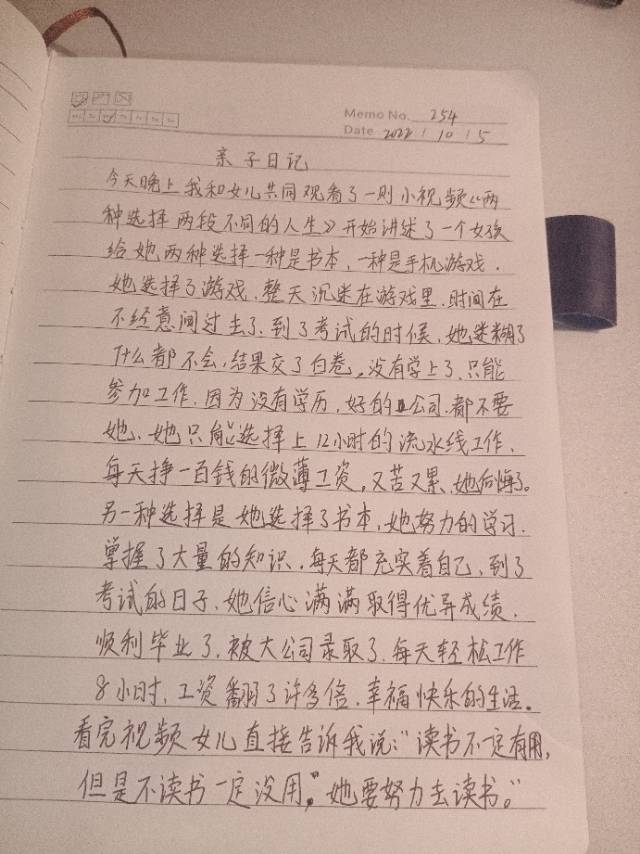 Memo No. 254
Date 2022 / 10 / 5
亲子日记
今天晚上我和女儿共同观看了一则小视频《两
种选择 两段不同的人生》开始讲述了一个女孩
给她两种选择一种是书本，一种是手机游戏，
她选择了游戏，整天沉迷在游戏里，时间在
不经意间过去了，到了考试的时候，她迷糊了
什么都不会，结果交了白卷，没有学上了，只能
参加工作，因为没有学历，好的公司，都不要
她，她只能选择上12小时的流水线工作，
每天挣一百钱的微薄工资，又苦又累，她后悔了。
另一种选择是她选择了书本，她努力的学习，
掌握了大量的知识，每天都充实着自己，到了
考试的日子，她信心满满取得优异成绩，
顺利毕业了，被大公司录取了，每天轻松工作
8小时，工资翻了许多倍，幸福快乐的生活。
看完视频女儿直接告诉我说：“读书不一定有用，
但是不读书一定没用。”她要努力去读书。”